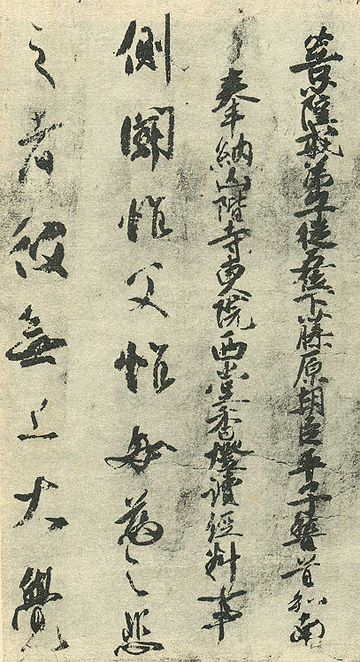 菩薩戒弟子従五位下藤原朝臣平子首和南
奉納山階寺東院西堂香燈讀經料事
側聞惟父惟母慈之悲
之者彼無上大覺